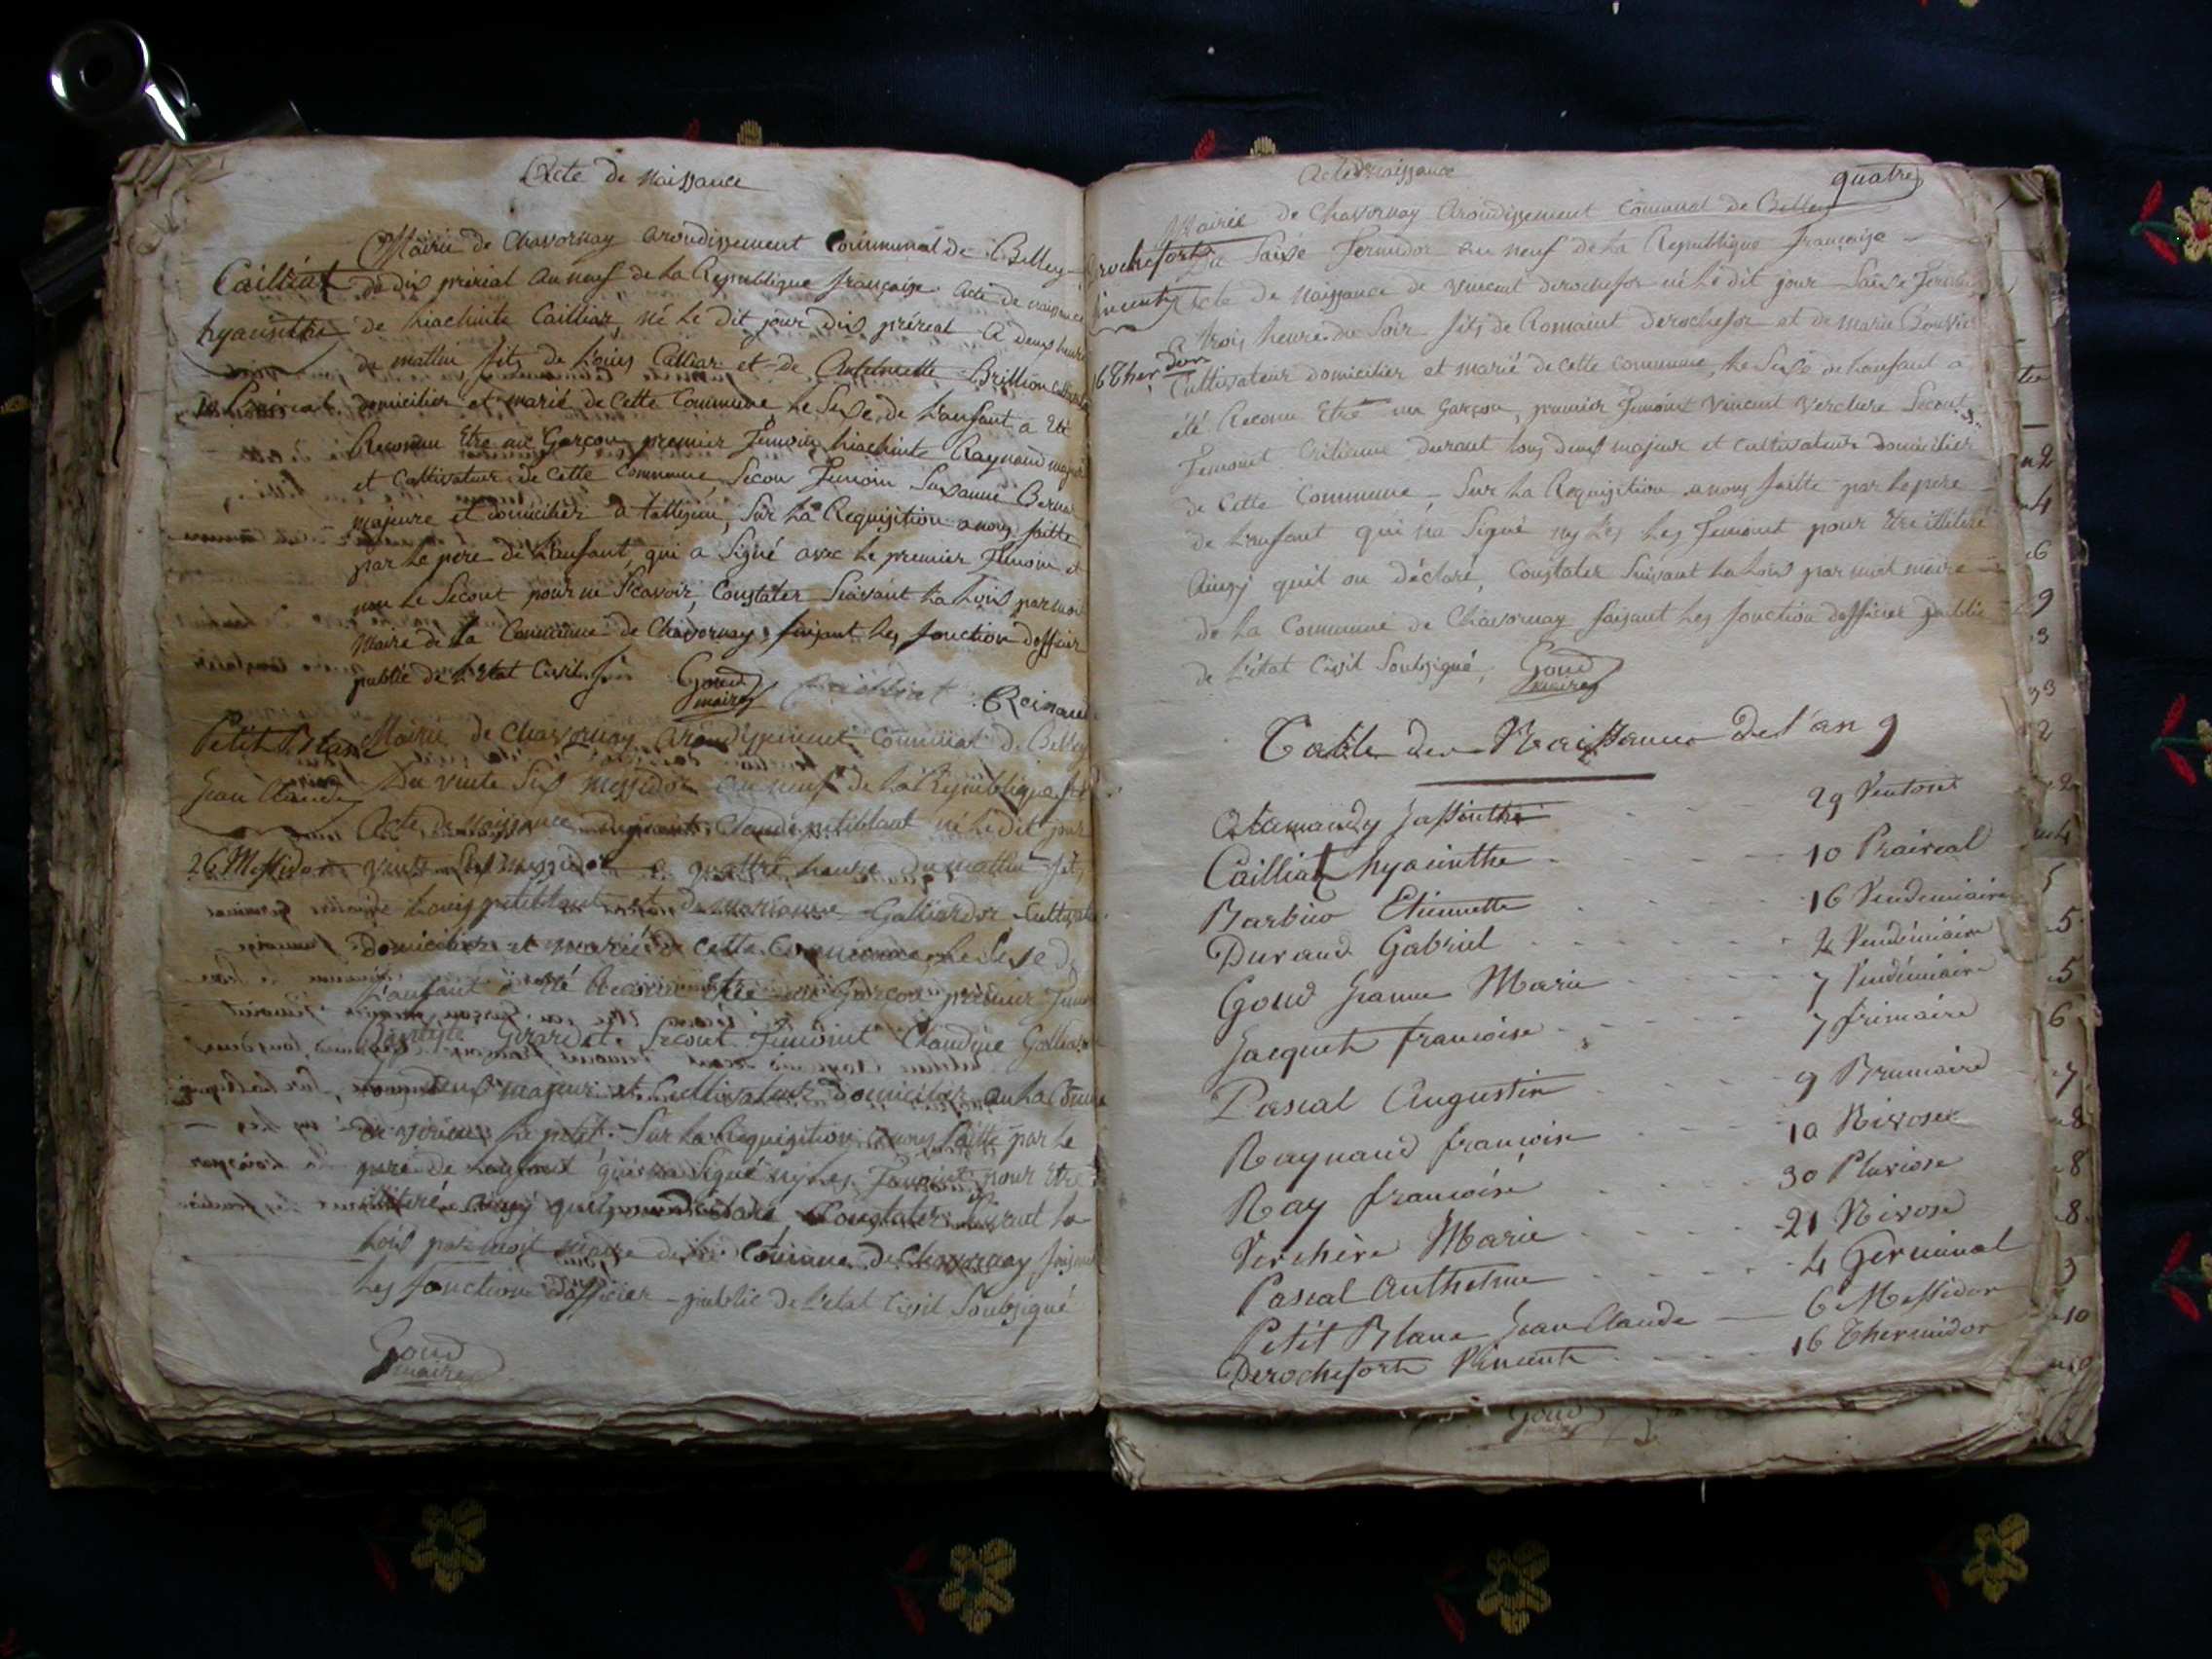 Acte de Naissance
Mairie de Chavornay arondissement communal de Belley
Cailliat
du dix prérial an neuf de la Republique française acte de naissance
hyacinthe
de hiachinte Cailliar, né le dit jour dix préreal a deux heure
du mattin fits de Louis Calliar et de Antoinette Brillion
10 Prairial
domicilier et marié de cette Commune le Sexe de L'anfant a Eté
Reconnu Etre un Garçon, premier Temoin hiachinte Raynaud majeur
et Cultivateur de cette Commune, Secon Temoin Susanne
majeure et domicilier a, Sur La Requisition a nous faitte
par le pere de L'anfant, qui a Signé avec le premier Temoin et
non le Secont pour ne Scavoir, Constater Suivant La Loix par moi
Maire de La Commune de Chavornay faisant les fonction dofficier
public de L'Etat Civil
Goud
maire
Cailliat
Reinaud
Petit Blanc
Mairie de Chavornay arondissement communal de Belley
Jean Claude
Du vinte Six Messidor an neuf de La Republique
Acte de Naissance de Claude petitblant né le dit jour
26 Messidor
vinte Six messidor a quattre heure du mattin fits
de Louis petitblant et de marianne Galliardor Cultivateur
Domicilier et marié de cette Commune le Sexe de
L'anfant a été Reconnu Etre un Garçon premier
Baptiste Girardet, Secont Temoint Claudine
tous deux majeur et Cultivateur domicilier
de virieu le petit. Sur La Requisition a nous faitte par le
pere de Lanfant qui na Signé ny les Temoint pour Etre
illiteré ainsy quil on declaré, Constater Suivant la
Loix par moit maire de la Commune de Chavornay faisant
les fonction dofficier public de L'etat Civil Soubsigné
Goud
maire
Acte de Naissance
quatre
Mairie de Chavornay arondissement communal de Belley
Derochefort
Du Saixe Termidor an neuf de la Republique française
Vincent
Acte de Naissance de vincent derochefor né le dit jour Saixe
a trois heure du Soir fits de Romaint derochefor et de marie Bouvier
16 Thermidor
Cultivateur domicilier et marié de cette commune, le Sexe de Lanfant a
été Reconu Etre un Garçon, premier Temoint Vincent Verchere Secont
Temoint Etienne durant tous deux majeur et Cultivateur domicilier
de Cette Commune, Sur La Requisition a nous faitte par le pere
de Lanfant qui na Signé ny les Temoint pour Etre illiteré
Ainsy quil on déclaré, Constater Suivant La Loix par moit maire
de La Commune de Chavornay faisant les fonction dofficier public
de L'état Civil Soubsigné,
Goud
maire
Table des Naissances De l'an 9
Alamandy Jassinthe 29 Ventose
Cailliat hyacinthe 10 Praireal
Barbier Etiennette 16 Vendemiaire
Durand Gabriel 2 Vendémiaire
Goud Jeanne Marie 7 Vendémiaire
Jacquet francoise 7 frimaire
Pascal Augustin 9 Brumaire
Raynaud francoise 10 Nivose
Ray francoise 30 Pluviose
Verchère Marie 21 Nivose
Pascal Anthelme 4 Germinal
Petit Blanc Jean Claude 6 Messidor
Derochefort Vincent 16 Thermidor
Goud